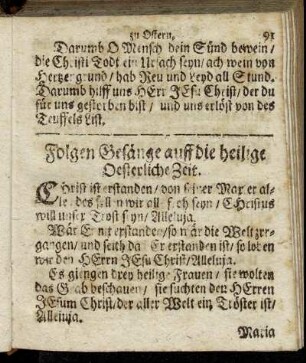 zu Ostern. 91
Darumb O Mensch dein Sünd bewein /
die Christi Todt ein Ursach seyn / ach wein von
Hertzengrund / hab Reu und Leyd all Stund.
Darumb hilff uns HErr JEsu Christ / der du
für uns gestorben bist / und uns erlöst von des
Teuffels List.
Folgen Gesänge auff die heilige
Oesterliche Zeit.
CHrist ist erstanden / von seiner Marter al-
le / des sollen wir all froh seyn / CHristus
will unser Trost seyn / Alleluja.
Wär Er nit erstanden / so wär die Welt zer-
gangen / und seith daß Er erstanden ist / so loben
wir den HErrn JEsu Christ / Alleluja.
Es giengen drey heilige Frauen / sie wolten
das Grab beschauen / sie suchten den HErren
JEsum Christ / der aller Welt ein Tröster ist /
Alleluja.
Maria